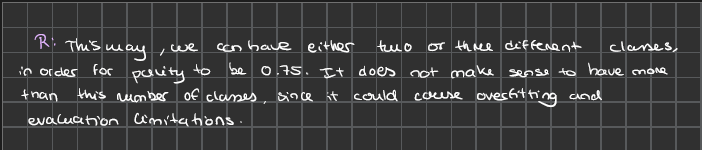 R: This way, we can have either two or three different classes,
in order for purity to be 0.75. It does not make sense to have more
than this number of classes, since it could cause overfitting and
evaluation limitations.